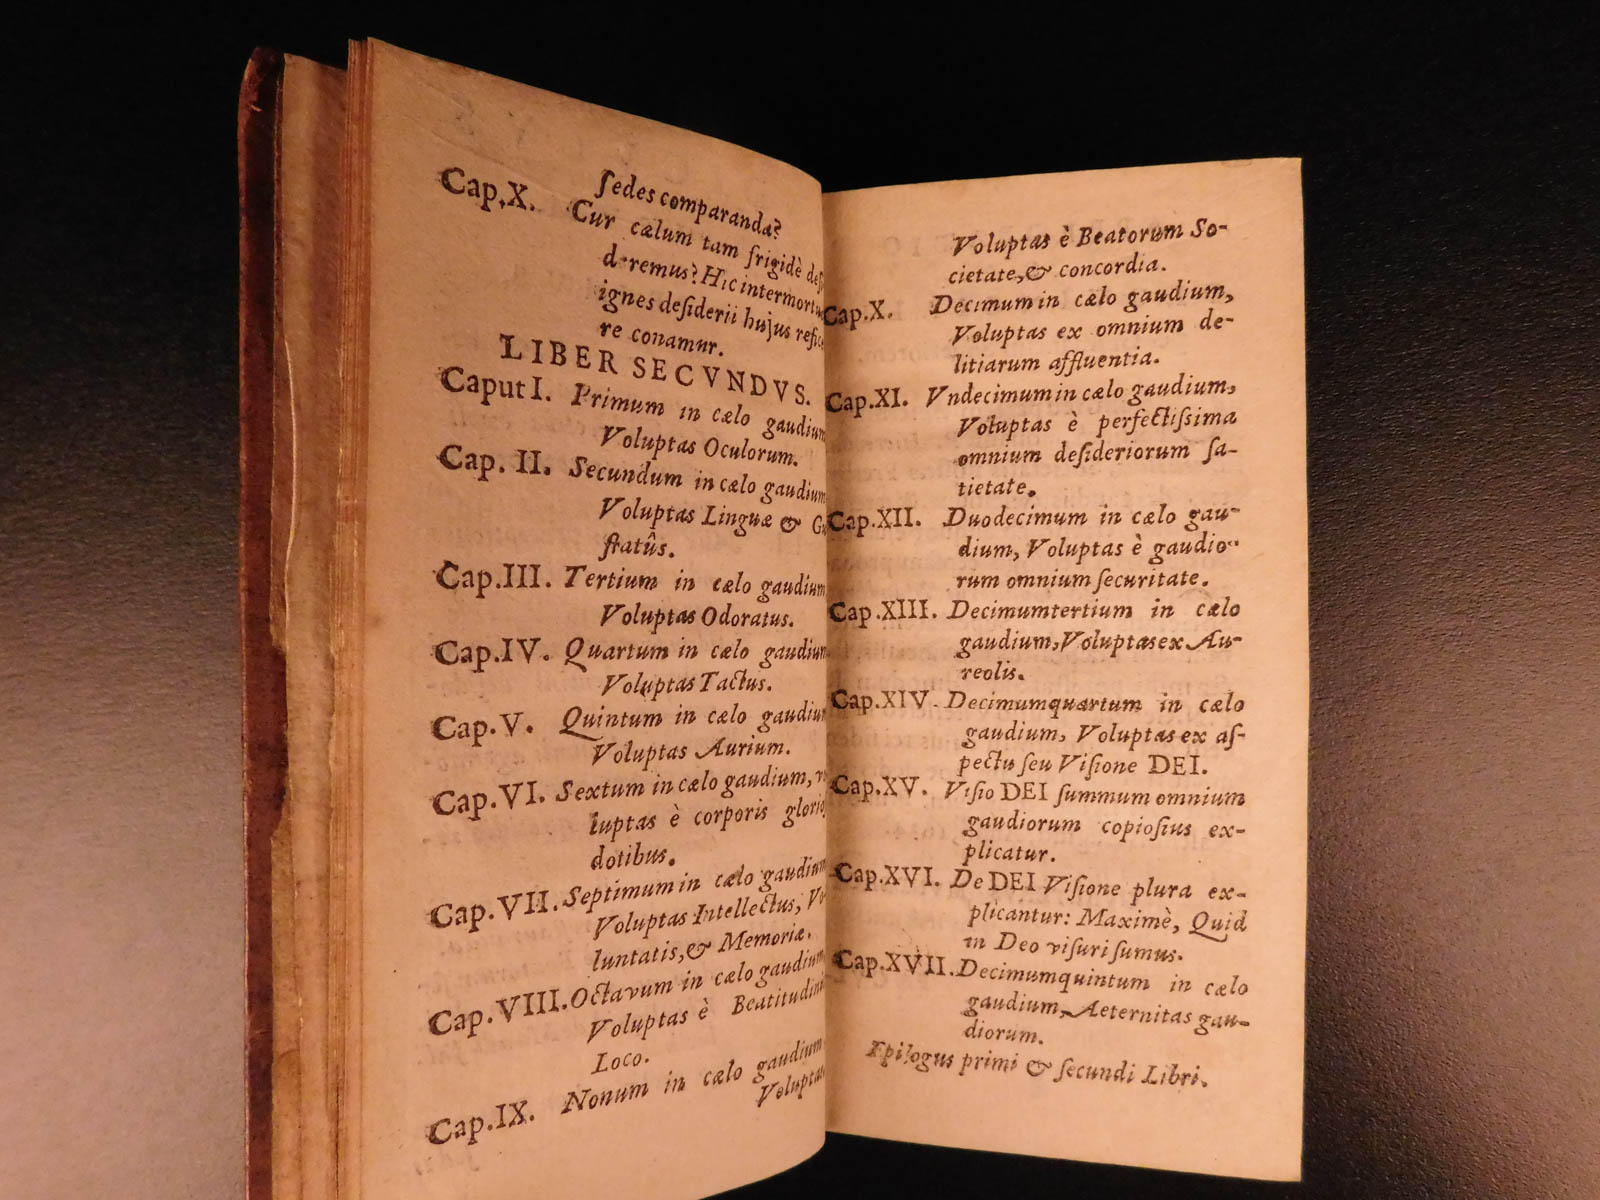 sedes comparanda?
Cap.X. Cur cælum tam frigidè desi
deremus? Hic intermortu
ignes desiderii hujus refice
re conamur.
LIBER SECVNDVS.
Caput I. Primum in cælo gaudium
Voluptas Oculorum.
Cap. II. Secundum in cælo gaudium
Voluptas Linguæ & Gu
statûs.
Cap.III. Tertium in cælo gaudium
Voluptas Odoratus.
Cap.IV. Quartum in cælo gaudium
Voluptas Tactus.
Cap.V. Quintum in cælo gaudium
Voluptas Aurium.
Cap.VI. Sextum in cælo gaudium, vo
luptas è corporis glorio
dotibus.
Cap.VII. Septimum in cælo gaudium
Voluptas Intellectus, Vo
luntatis, & Memoriæ.
Cap.VIII. Octavum in cælo gaudium
Voluptas è Beatitudinis
Loco.
Cap.IX. Nonum in cælo gaudium
Voluptas
Voluptas è Beatorum So-
cietate, & concordia.
Cap.X. Decimum in cælo gaudium,
Voluptas ex omnium de-
litiarum affluentia.
Cap.XI. Vndecimum in cælo gaudium,
Voluptas è perfectissima
omnium desideriorum sa-
tietate.
Cap.XII. Duodecimum in cælo gau-
dium, Voluptas è gaudio-
rum omnium securitate.
Cap.XIII. Decimumtertium in cælo
gaudium, Voluptas ex Au-
reolis.
Cap.XIV. Decimumquartum in cælo
gaudium, Voluptas ex as-
pectu seu Visione DEI.
Cap.XV. Visio DEI summum omnium
gaudiorum copiosius ex-
plicatur.
Cap.XVI. De DEI Visione plura ex-
plicantur: Maximè, Quid
in Deo visuri sumus.
Cap.XVII. Decimumquintum in cælo
gaudium, Aeternitas gau-
diorum.
Epilogus primi & secundi Libri.